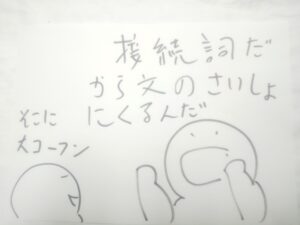 接続詞だ
から文のさいしょ
にくるんだ
そこに
大コーフン